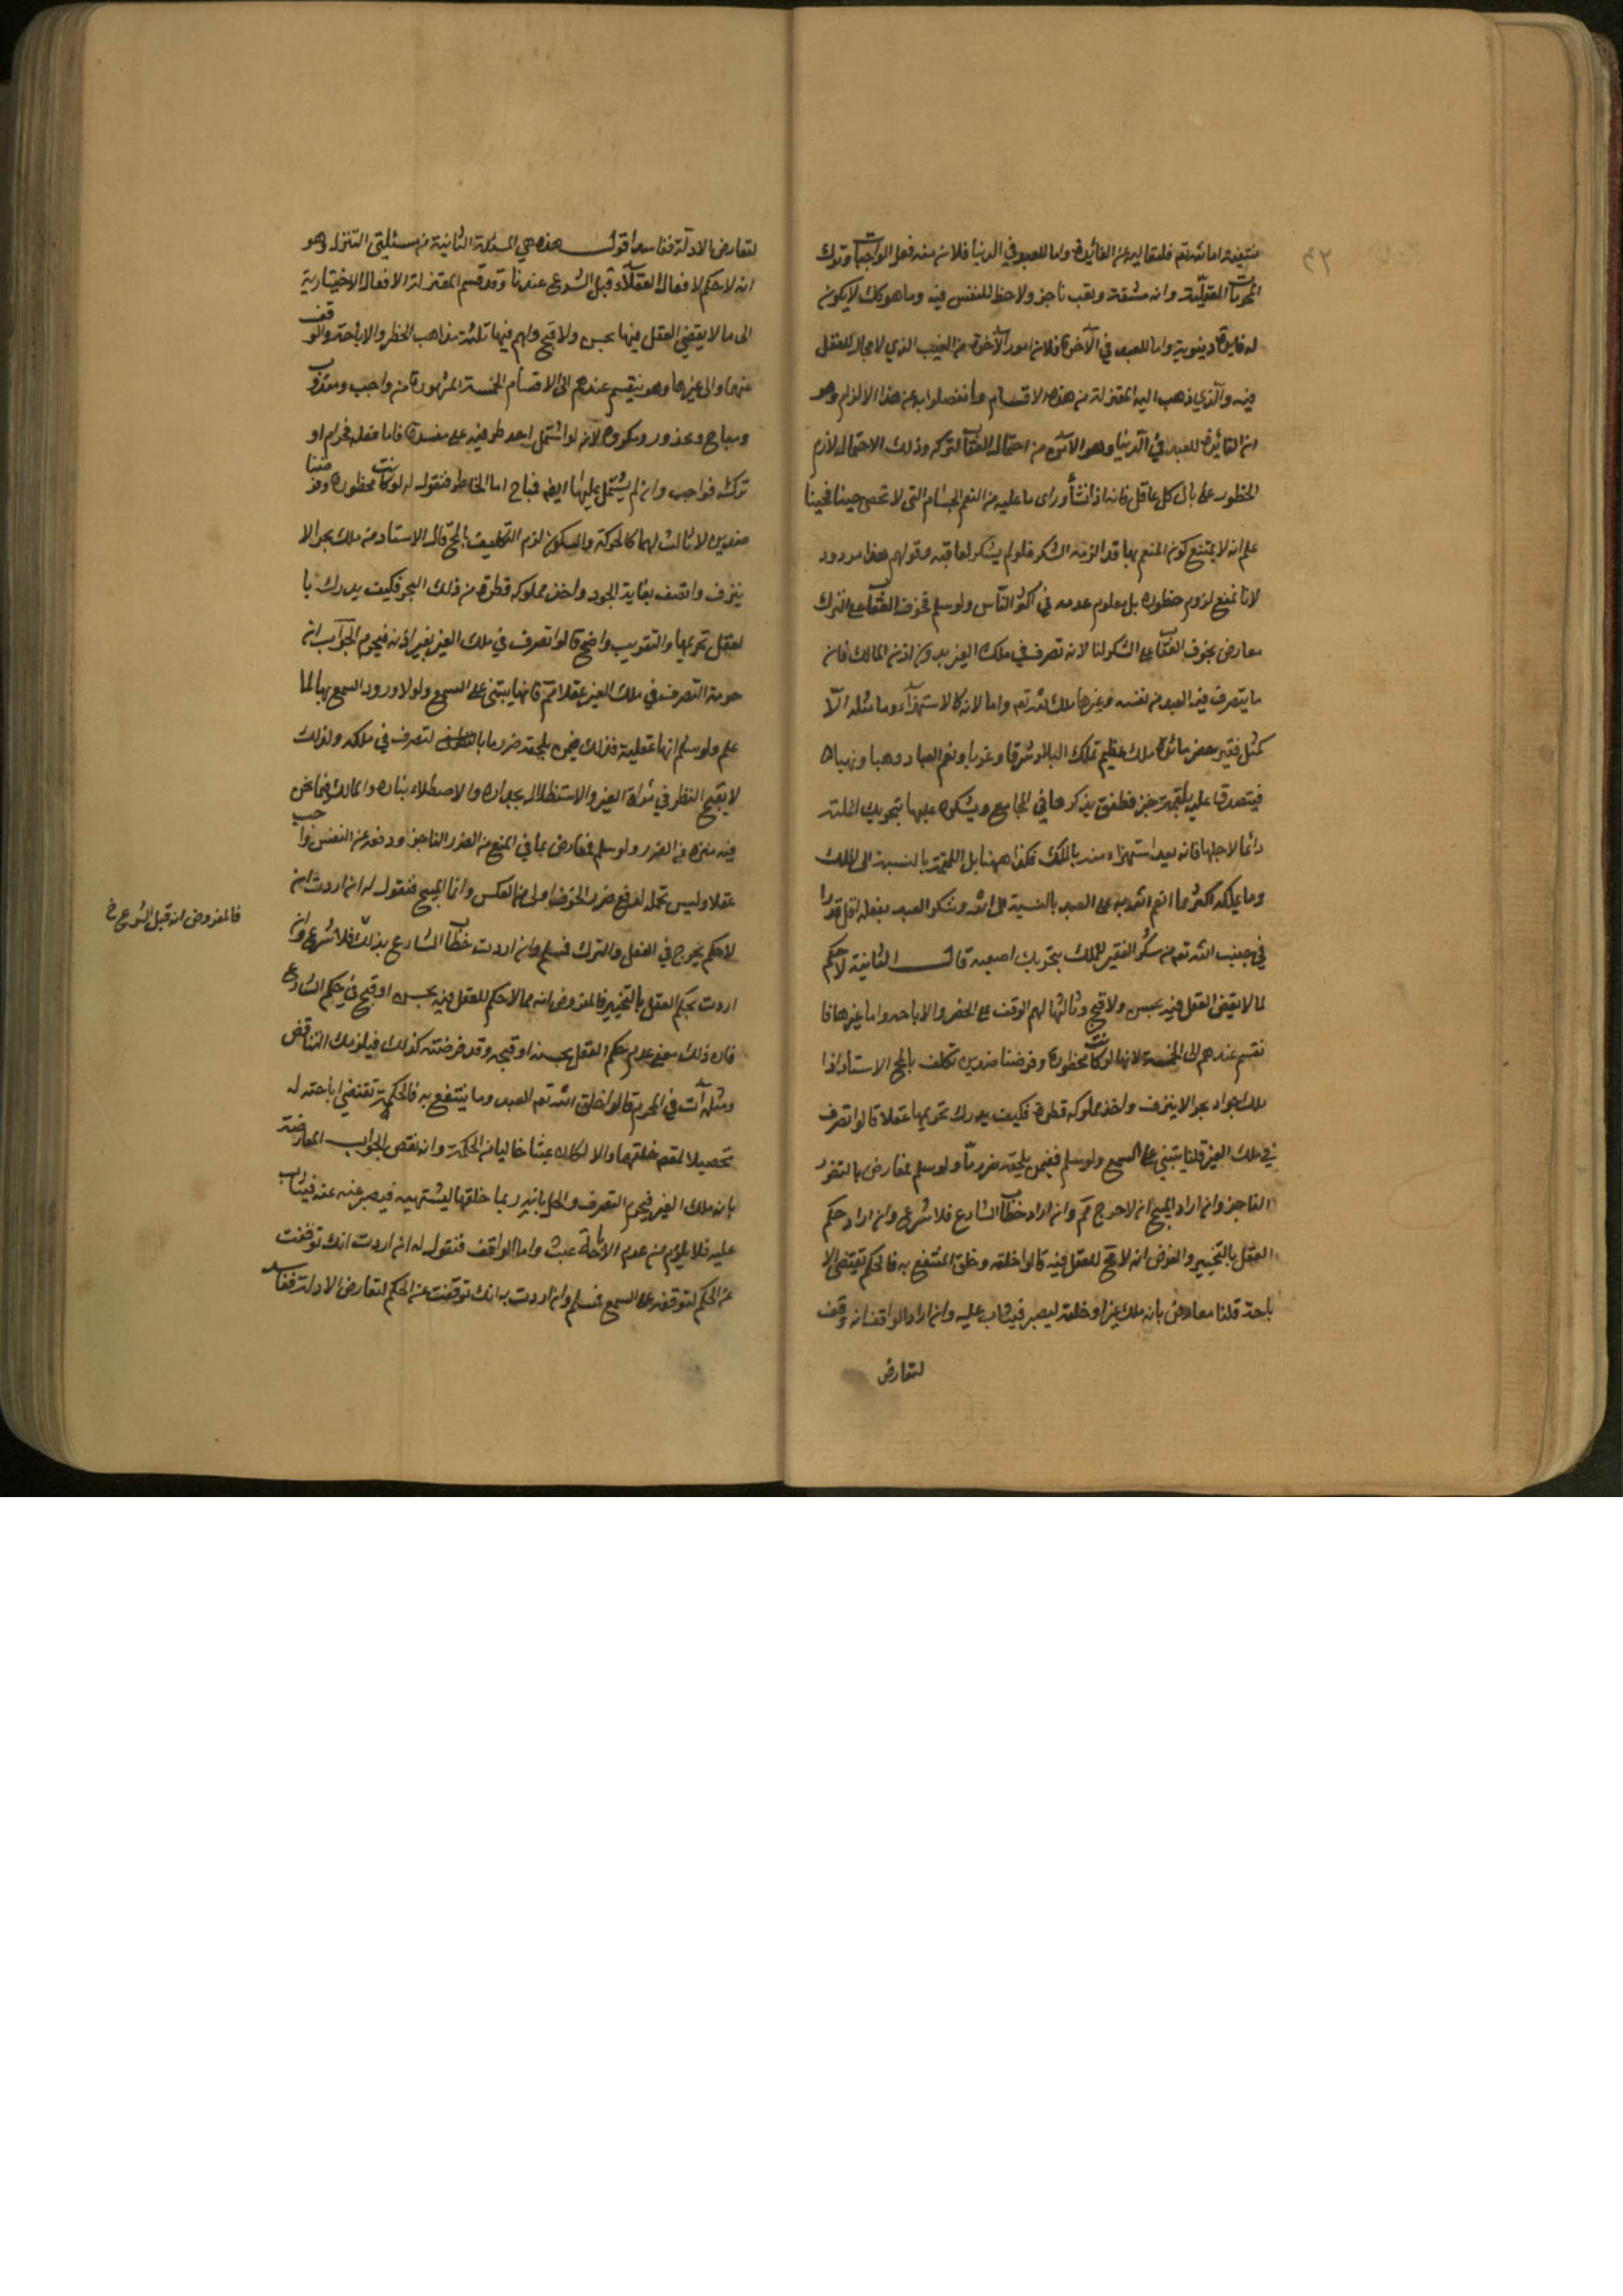 ٤٢
منتفية اما لله تعم فلتعاليه عن الفائدة واما للعبد في الدنيا فلان منه فعل الواجبات وترك
المحرمات العقلية وانه مشقة وتعب ناجز ولا حظ للنفس فيه وما هو كك لا يكون
له فايدة دينوية واما للعبد في الآخرة فلان امور الآخرة من الغيب الذي لا مجال للعقل
فيه والذي ذهب اليه المعتزلة من هذه الاقسام وانفصلوا به عن هذا الالزام وهو
ان الفائدة للعبد في الدنيا وهو الأمن من احتمال العقاب لتركه وذلك الاحتمال لازم
الخطور على بال كل عاقل فانه اذا نشأ وراى ما عليه من النعم الجسام التي لا تحصى حينا فحينا
علم انه لا يمتنع كون المنعم بها قد الزمه الشكر فلو لم يشكر لعاقبه وقولهم هذا مردود
لانا نمنع لزوم خطوره بل معلوم عدمه في اكثر الناس ولو سلم فخوف العقاب على الترك
معارض بخوف العقاب على الشكر لنا لانه تصرف في ملك الغير بدون اذن المالك فان
ما يتصرف فيه العبد من نفسه وغيرها ملك لله تعم واما لانه كالاستهزاء وما مثله الا
كمثل فقير حضر مائدة ملك عظيم تملك البلاد شرقا وغربا ونعم العباد وهبا ونهبا
فيتصدق عليه بلقمة خبز فطفق يذكرها في المجامع ويشكره عليها بتحريك انملته
دائما لاجلها فانه يعد استهزاء منه بالملك فكذا ههنا بل اللقمة بالنسبة الى الملك
وما يملكه اكثر مما انعم الله به على العبد بالنسبة الى الله وشكر العبد بفعله اقل قدرا
في جنب الله تعم من شكر الفقير للملك بتحريك اصبعه قال الثانية لا حكم
لما لا يقضى العقل فيه بحسن ولا قبح وثالثها لهم الوقف على الحضر والاباحه واما غيرها فا
نقسم عندهم الى الخمسة لانها لو كانت محظورة وفرضنا ضدين تكلف بالمح الاستاذ اذا
ملك جواد بحرا لا ينزف واخذ مملوكه قطرة فكيف يدرك تحريمها عقلا قالوا تصرف
في ملك الغير قلنا يبتني على السمع ولو سلم ففيمن يلحقه ضرر ما ولو سلم فمعارض بالضرر
الناجز وان اراد المبيح ان لا حرج فم وان اراد خطاب الشارع فلا شرع وان اراد حكم
العقل بالتخيير والفرض انه لا مح للعقل فيه قالوا خلقه وخلق المنتفع به فالحكم تقتضى الا
باحة قلنا معارض بانه ملك غيره او خلقه ليصبر فيثاب عليه وان اراد الواقف انه وقف
لتعارض
لتعارض الادلة ففاسد اقول هذه هي المسئلة الثانية من مسئلتي التنزل وهو
انه لا حكم لافعال العقلاء قبل الشرع عندنا وقد قسم المعتزلة الافعال الاختيارية
الى ما لا يقضي العقل فيها بحسن ولا قبح ولهم فيها ثلثة مذاهب الحظر والاباحة والوقف
عنهما والى غيرها وهو ينقسم عندهم الى الاقسام الخمسة المشهورة من واجب ومندوب
ومباح ومحذور ومكروه لانه لو اشتمل احد طرفيه على مفسدة فاما فعله فحرام او
تركه فواجب وان لم يشتمل عليها ايضا فمباح اما الحاظر فنقول له لو كانت محظورة وفرضنا
ضدين لا ثالث لهما كالحركة والسكون لزم التكليف بالمح قال الاستاد من ملك بحرا لا
ينزف واتصف بغاية الجود واخذ مملوكه قطرة من ذلك البحر فكيف يدرك با
لعقل تحريمها والتقريب واضح قالوا تصرف في ملك الغير بغير اذنه فيحرم الجواب ان
حرمة التصرف في ملك الغير عقلا مم فانها يبتنى على السمع ولولا ورود السمع بها لما
علم ولو سلم انها عقلية فذلك فيمن يلحقه ضرر ما لتصرف في ملكه ولذلك
لا يقبح النظر في مرآة الغير والاستظلال بجداره والاصطلاء بناره والمالك فيما نحن
فيه منزه عن الضرر ولو سلم فمعارض بما في المنع من الضرر الناجز ودفعه عن النفس واجب
عقلا وليس تحمله لدفع ضرر الخوف اولى من العكس واما المبيح فنقول له ان اردت ان
لا حكم بحرج في الفعل والترك فمسلم وان اردت خطاب الشارع بذلك فلا شرع وان
اردت بحكم العقل بالتخيير فالمفروض انه مما لا حكم للعقل فيه بحسن او قبح في حكم الشارع
فان ذلك معنى عدم حكم العقل بحسنه او قبحه وقد فرضته كذلك فيلزمك التناقض
ومثله آت في المحرم قالوا خلق الله تعم العبد وما ينتفع به فالحكمة تقتضي اباحته له
تحصيلا لمقصد خلقهما والا لكان عبثا خاليا من الحكمة وانه نقص الجواب المعارضة
بانه ملك الغير فيحرم التصرف والحل بانه ربما خلقها ليشتهيه فيصبر عنه فيثاب
عليه فلا يلزم من عدم الاباحة عبث واما الواقف فنقول له ان اردت انك توقفت
عن الحكم لتوقفه على السمع فمسلم وان اردت به انك توقفت عن الحكم لتعارض الادلة ففاسد
فالمفروض انه قبل الشرع خ